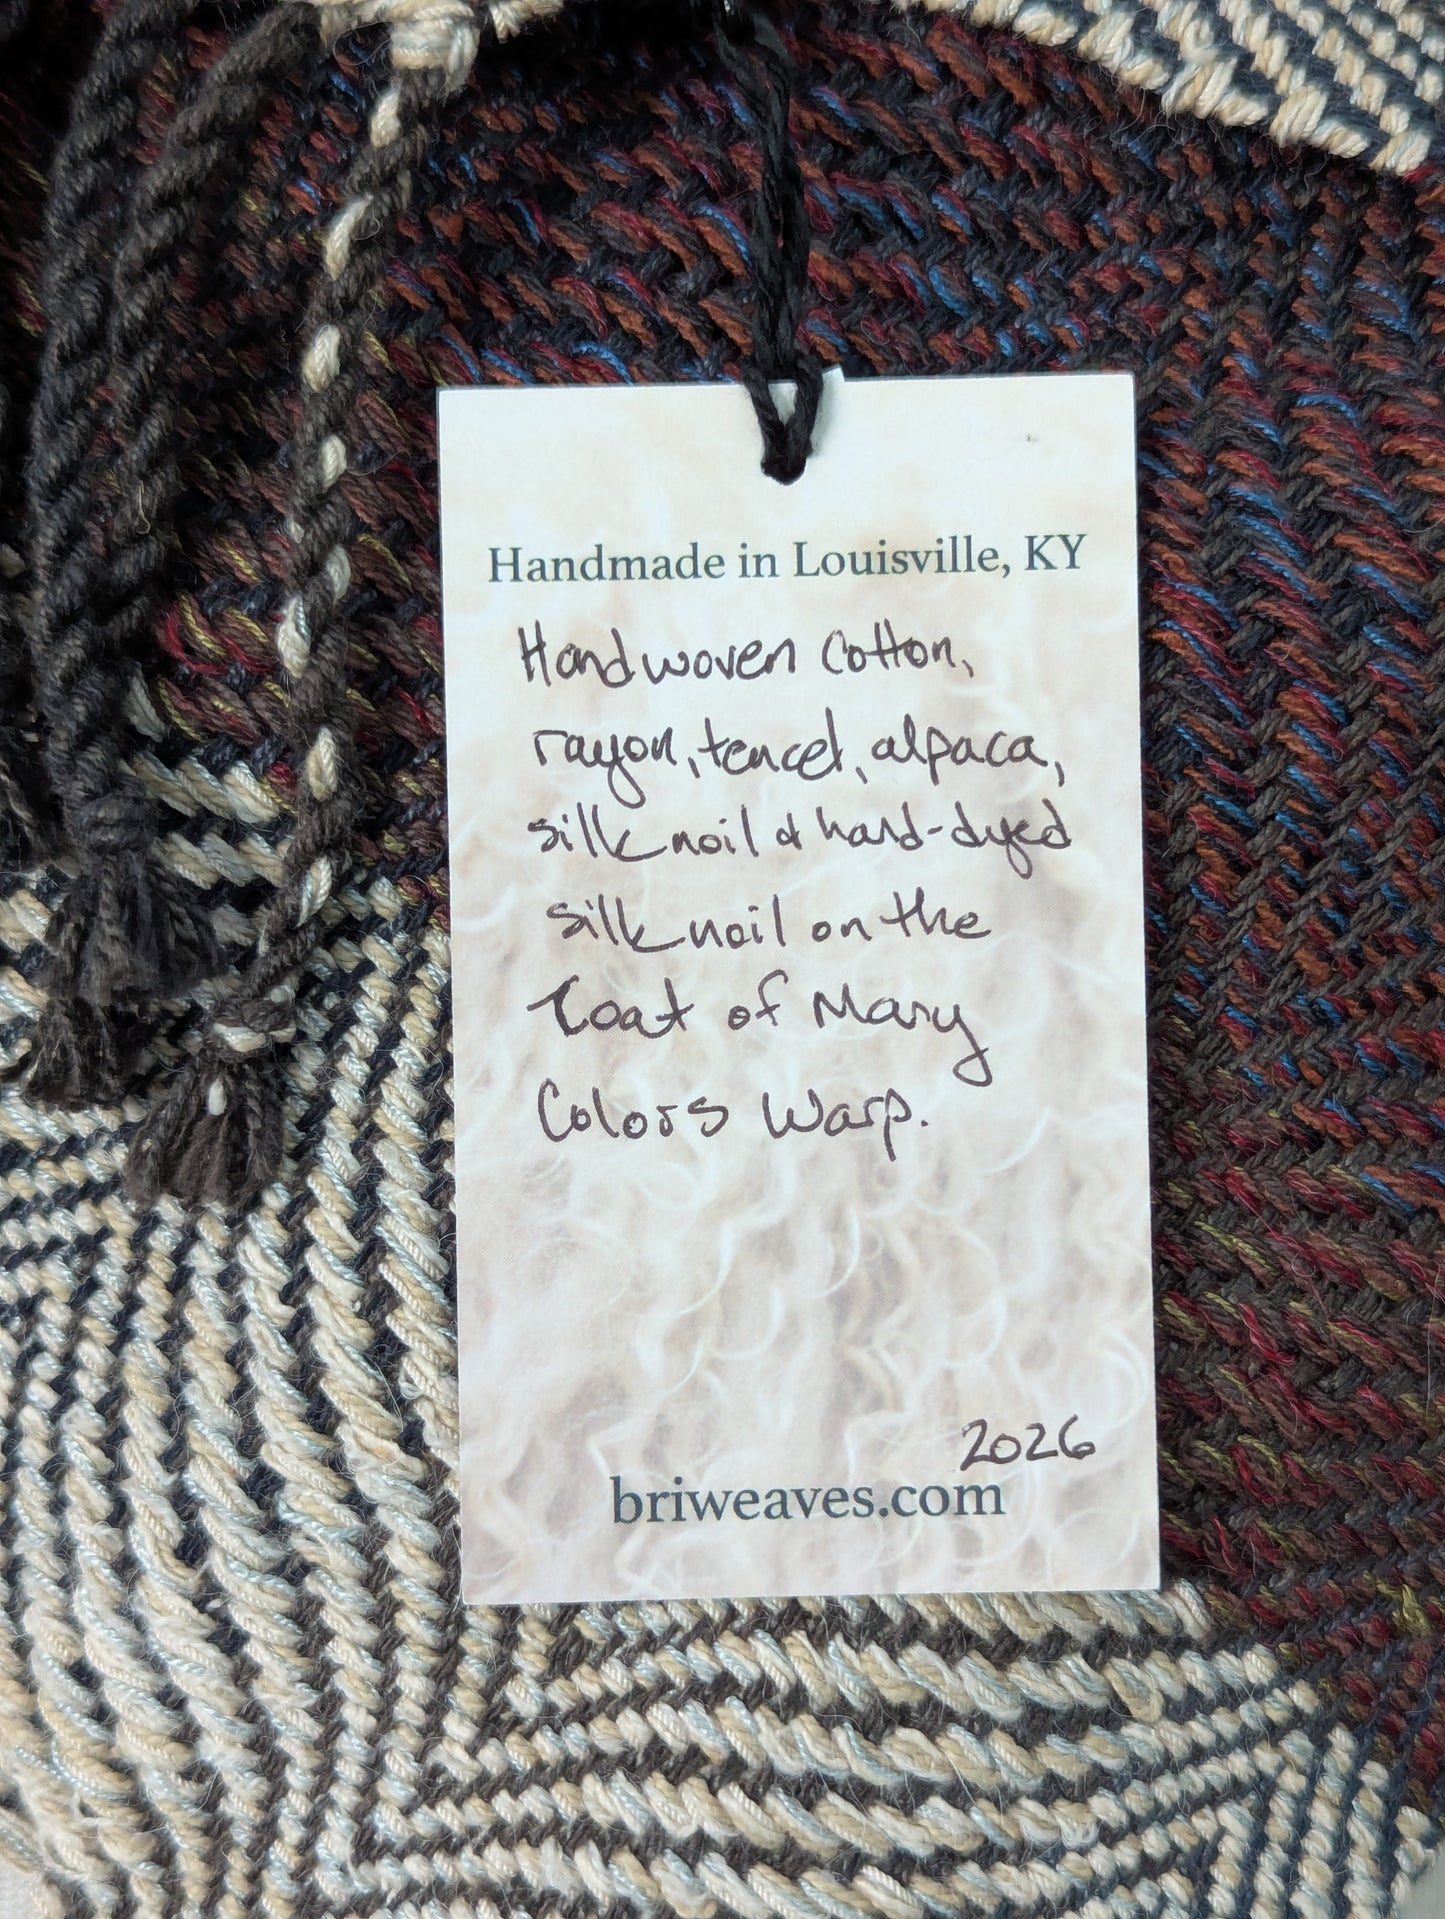 Handmade in Louisville, KY
Handwoven cotton,
rayon, tencel, alpaca,
silk noil & hand-dyed
silk noil on the
Coat of Many
Colors Warp.
2026
briweaves.com